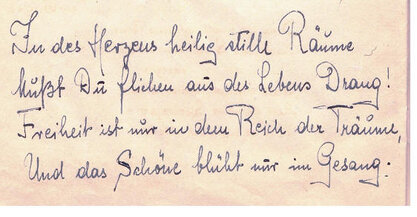 In des Herzens heilig stille Räume
Mußt Du fliehen aus des Lebens Drang!
Freiheit ist nur in dem Reich der Träume,
Und das Schöne blüht nur im Gesang.